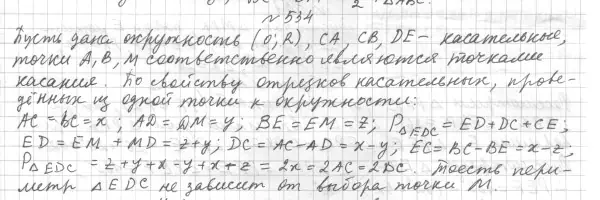 2 ΔABC.
№534
Пусть дана окружность (O; R), CA, CB, DE – касательные,
точки A, B, M соответственно являются точками
касания. По свойству отрезков касательных, прове-
дённых из одной точки к окружности:
AC = BC = x; AD = DM = y; BE = EM = z; P△EDC = ED + DC + CE;
ED = EM + MD = z + y; DC = AC – AD = x – y; EC = BC – BE = x – z;
P△EDC = z + y + x – y + x + z = 2x = 2AC = 2BC. Тоесть пери-
метр △EDC не зависит от выбора точки M.